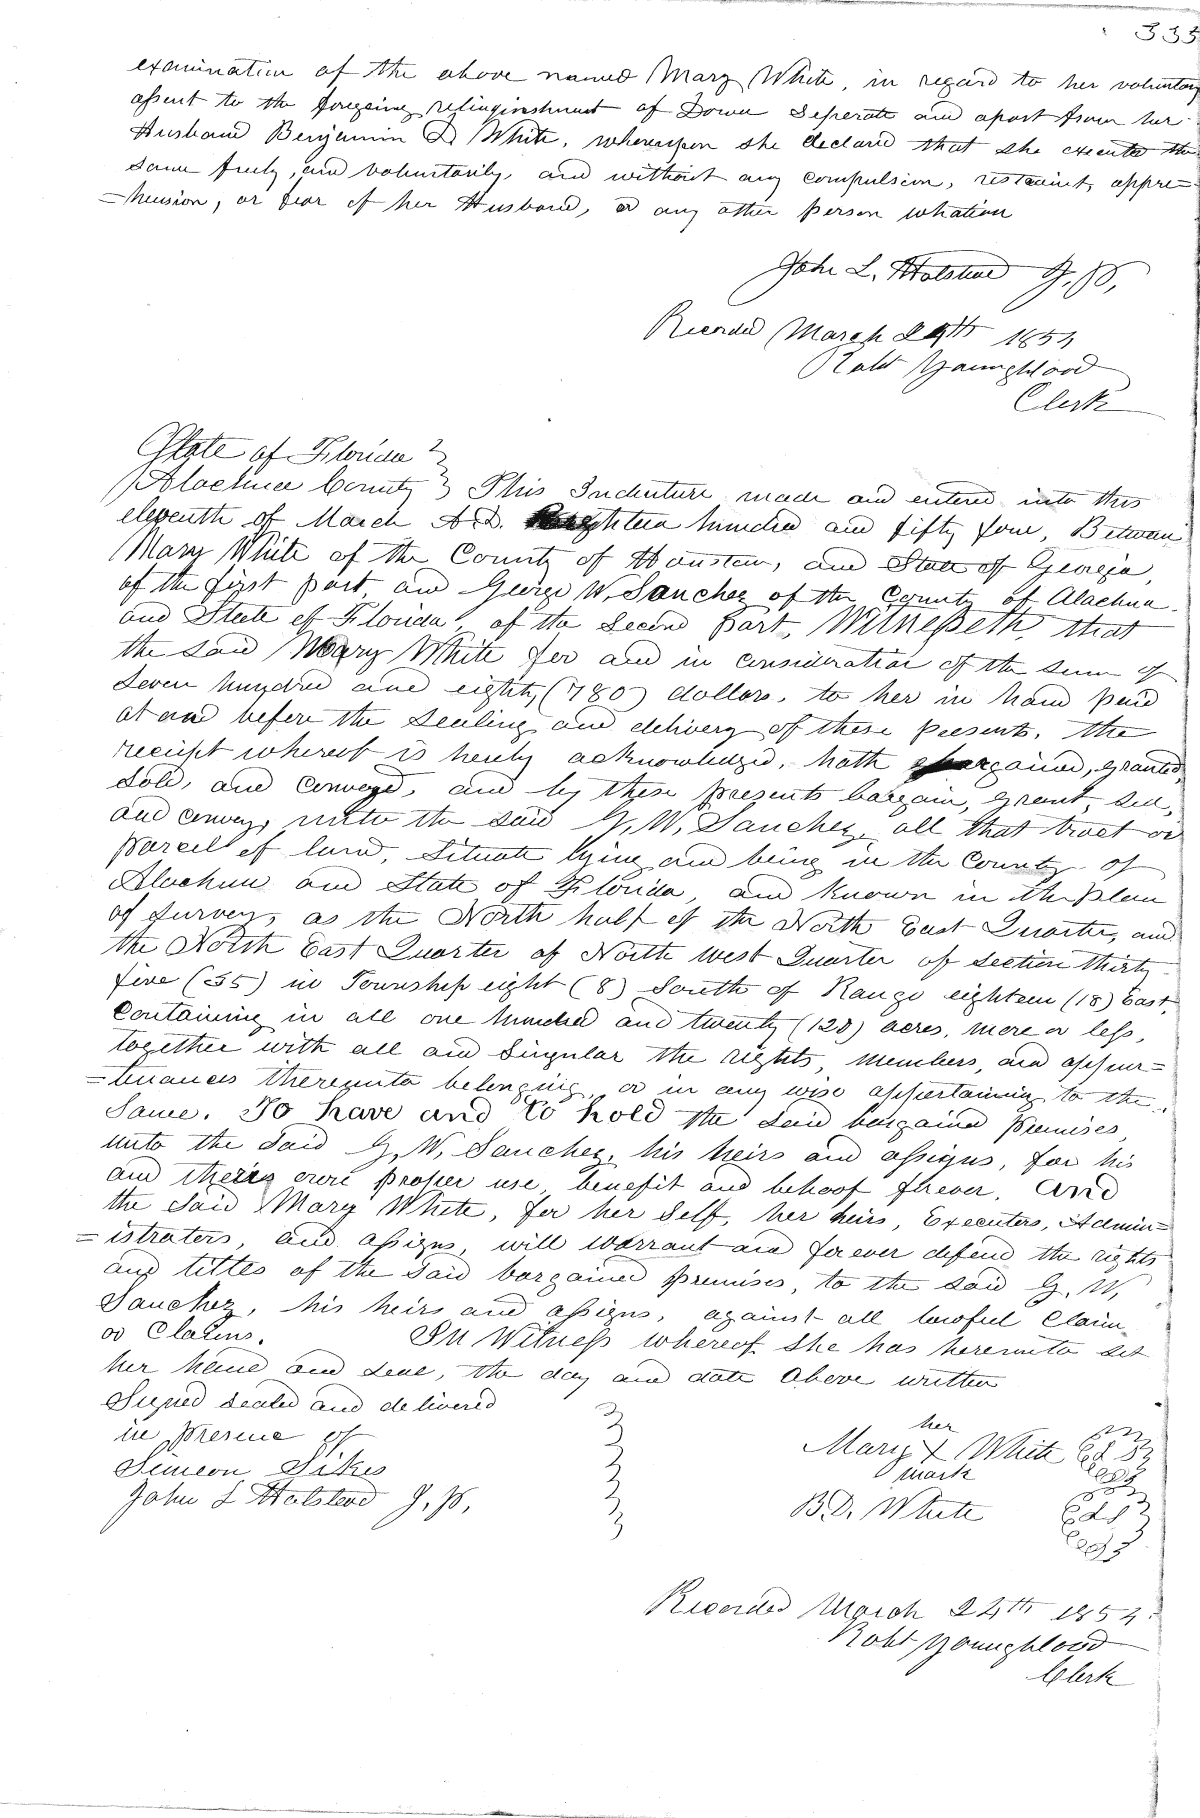 335
examination of the above named Mary White, in regard to her voluntary
assent to the foregoing relinquishment of Dower Seperate and apart from her
Husband Benjamin D. White, whereupon she declared that she executed the
same freely, and voluntarily, and without any compulsion, restraint, appre=
=hension, or fear of her Husband, or any other person whatsoever
John L. Halstead J. P.
Recorded March 24th 1854
Robt Youngblood
Clerk
State of Florida
Alachua County } This Indenture made and entered into this
eleventh of March A.D. Eighteen hundred and fifty four, Between
Mary White of the County of Houston, and State of Georgia,
of the first part, and George W. Sanchez of the County of Alachua
and State of Florida, of the Second part, Witnesseth that
the said Mary White for and in consideration of the sum of
Seven hundred and eighty (780) dollars, to her in hand paid
at and before the Sealing and delivery of these presents, the
receipt whereof is hereby acknowledged, hath bargained, granted
Sold, and conveyed, and by these presents bargain, grant, sell,
and convey, unto the said G. W. Sanchez, all that tract or
parcell of land, Situate lying and being in the County of
Alachua and State of Florida, and known in the plan
of Survey, as the North half of the North East Quarter, and
the North East Quarter of North west Quarter of Section thirty
five (35) in Township eight (8) South of Range eighteen (18) East,
Containing in all one hundred and twenty (120) acres, more or less,
together with all and Singular the rights, members, and appur=
=tenances thereunto belonging, or in any wise appertaining to the
Same. To have and to hold the said bargained premises,
unto the said G. W. Sanchez, his heirs and assigns, for his
and theirs own proper use, benefit and behoof forever. And
the said Mary White, for her Self, her heirs, Executers, Admin=
=istraters, and assigns, will warrant and forever defend the rights
and tittes of the said bargained premises, to the said G. W.
Sanchez, his heirs and assigns, against all lawful Claim
or Claims. In Witness whereof she has hereunto set
her hand and seal, the day and date above written
Signed sealed and delivered
in presence of
Simeon Sikes
John L Halstead J. P.
her
Mary X White
mark
B. D. White
Recorded March 24th 1854.
Robt Youngblood
Clerk